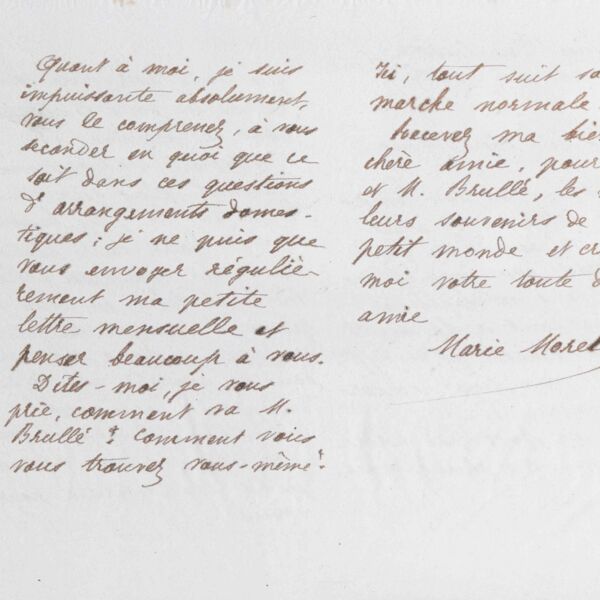 Quant à moi, je suis
impuissante absolument,
vous le comprenez, à vous
seconder en quoi que ce
soit dans ces questions
d'arrangements domes-
tiques; je ne puis que
vous envoyer réguliè-
rement ma petite
lettre mensuelle et
penser beaucoup à vous.
Dites-moi, je vous
prie, comment va M.
Brullé? Comment vous
vous trouvez vous-même?
Ici, tout suit sa
marche normale.
Recevez ma bien
chère amie, pour
et M. Brullé, les
leurs souvenirs de
petit monde et cr
moi votre toute d
amie
Marie Morel